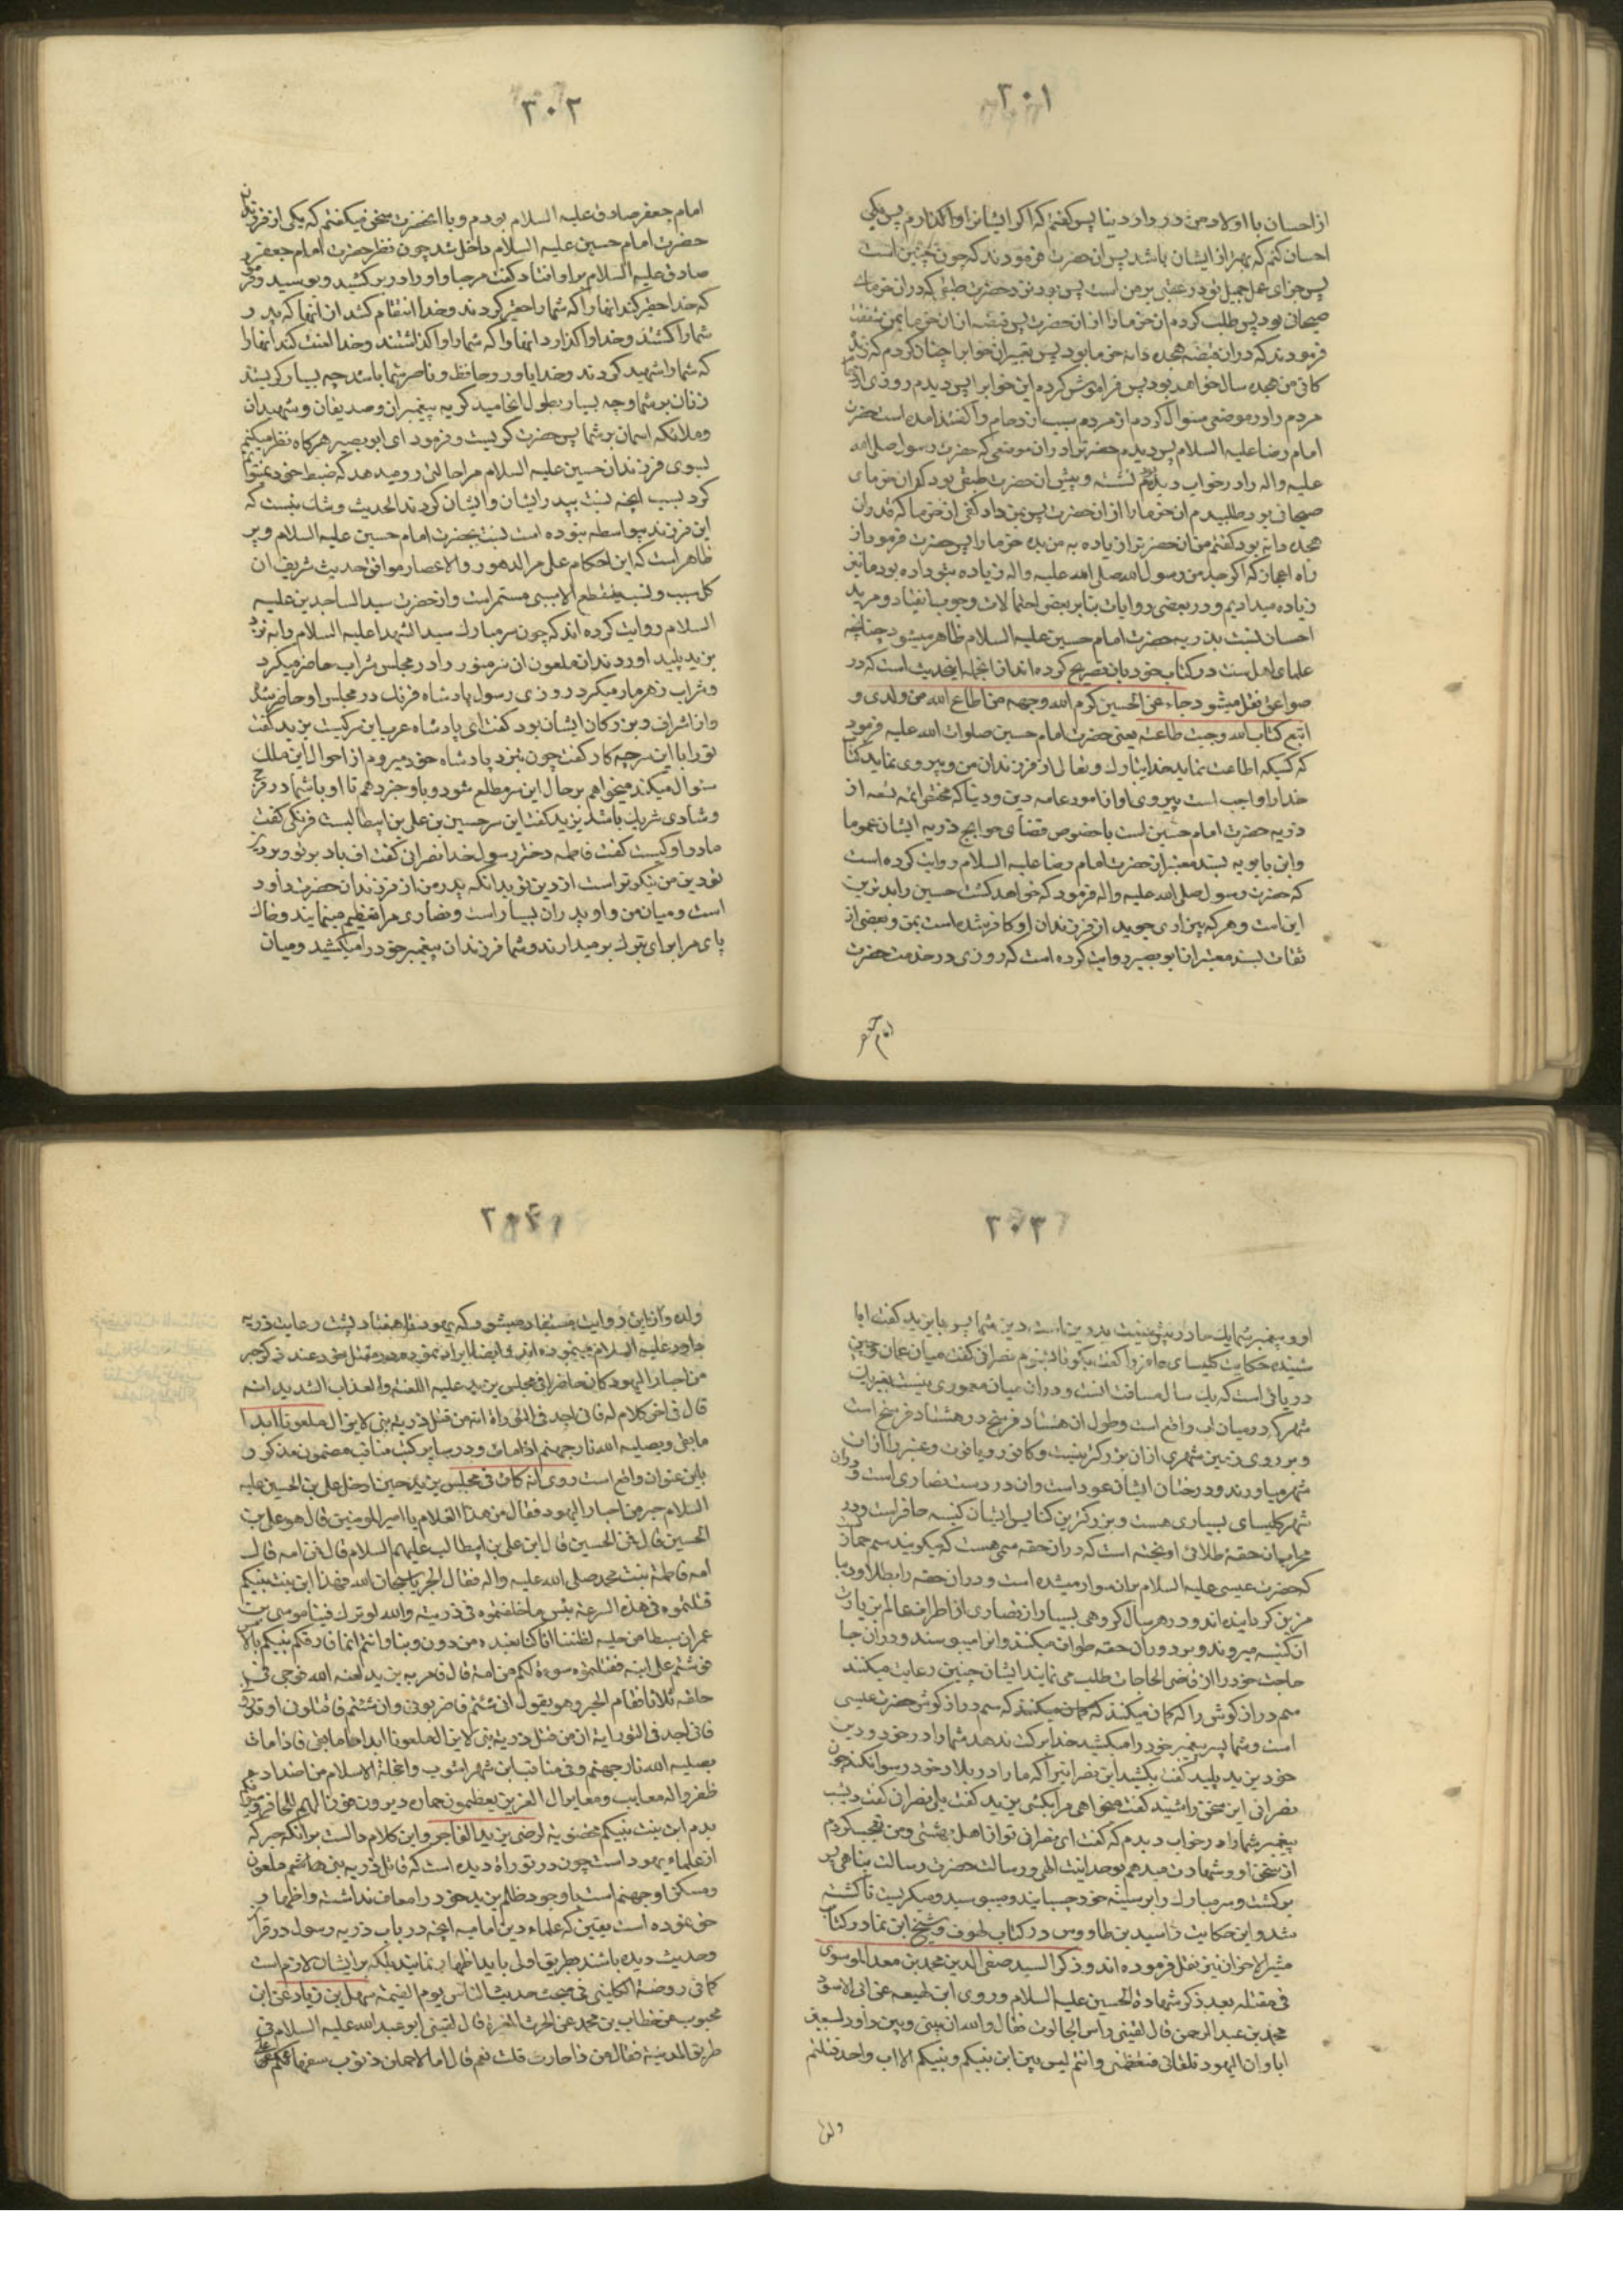 ۳۰۱
از احسان با اولاد من در دار دنیا پس گفتم که اگر ایشانرا واگذارم پس بکی
احسان کنم که بهتر از ایشان باشد پس ان حضرت فرمودند که چون چنین است
پس جزای عمل جمیل تو در عقبی بر من است پس بود نزد حضرت طبقی که در ان خرمای
صیحانی بود پس طلب کردم ان خرما را از ان حضرت پس قبضه از ان خرما بمن شفقت
فرمودند که در ان قبضه هجده دانه خرما بود پس تعبیر ان خوابرا چنان کردم که
من هجده سال خواهد بود پس فراموش کرده این خوابرا پس دیدم روزی
مردم را در موضعی سئوال کردم از مردم سبب ازدحام را گفتند امده است حضرت
امام رضا علیه السلام پس دیدم حضرترا در ان موضعی که حضرت رسول صلی الله
علیه واله را در خواب دیدم نشسته و پیش ان حضرت طبقی بود که ان خرمای
صیحانی بود طلبیدم ان خرما را از ان حضرت پس بمن داد کفی از خرما که قدر ان
هجده دانه بود گفتم من ان حضرترا زیاده به من بده خرما را پس حضرت فرمود از
راه اعجاز که اگر جد من رسول الله صلی الله علیه واله زیاده بتو داده بود ما نیز
زیاده میدادیم و در بعضی روایات بنابر بعضی احتمالات وجوب انقیاد و مزید
احسان نسبت بذریه حضرت امام حسین علیه السلام ظاهر میشود چنانچه
علمای اهل سنت در کتاب خود بان تصریح کرده‌اند از انجمله این حدیث است که در
صواعق نقل میشود جاء عن الحسین کرم الله وجهه من اطاع الله من ولدی و
اتبع کتاب الله وجبت طاعته یعنی حضرت امام حسین صلوات الله علیه فرمود
که کسیکه اطاعت نماید خدا تبارک و تعالی از فرزندان من و پیروی نماید کتاب
خدا را واجب است پیروی او از امور عامه دین و دنیا که مختص ائمه تسعه از
ذریه حضرت امام حسین است با خصوص قضای حوایج ذریه ایشان عموما
وابن بابویه بسند معتبر از حضرت امام رضا علیه السلام روایت کرده است
که حضرت رسول صلی الله علیه واله فرمود که خواهد کشت حسین را بدترین
این امت و هر که بیزاری جوید از فرزندان او کافر شده است بمن و بعضی از
ثقات بسند معتبر از ابو بصیر روایت کرده است که روزی در خدمت حضرت
امام جعفر
۳۰۲
امام جعفر صادق علیه السلام بودم و با انحضرت سخن میگفتم که یکی از فرزندان
حضرت امام حسین علیه السلام داخل شد چون نظر حضرت امام جعفر
صادق علیه السلام بر او افتاد گفت مرحبا و او را در بر کشید و بوسید و فرمود
که خدا حقیر کند انها را که شما را حقیر کردند و خدا انتقام کشد از انها که پدر
شما را کشتند و خدا واگذارد انها را که شما را واگذاشتند و خدا لعنت کند انها را
که شما را شهید کردند و خدا یاور و حافظ و ناصر شما باشد چه بسیار گریستند
زنان بر شما و چه بسیار بطول انجامید گریه پیغمبران و صدیقان و شهیدان
و ملائکه اسمان بر شما پس حضرت گریست و فرمود ای ابو بصیر هر گاه نظر میکنم
بسوی فرزندان حسین علیه السلام مرا حالتی رو میدهد که ضبط خود نمیتوانم
کرد بسبب انچه نسبت بپدر ایشان و ایشان کردند الحدیث و شک نیست که
این فرزند بیواسطه نبوده است نسبت بحضرت امام حسین علیه السلام و پر
ظاهر است که این احکام علی مر الدهور والاعصار موافق حدیث شریف ان
کل سبب و نسب ینقطع الا سببی مستمر است و از حضرت سید الساجدین علیه
السلام روایت کرده اند که چون سر مبارک سید الشهدا علیه السلام را به نزد
یزید پلید اوردند ان ملعون ان سر منور را در مجلس شراب حاضر میکرد
و شراب زهر مار میکرد روزی رسول پادشاه فرنگ در مجلس او حاضر شد
و از اشراف و بزرگان ایشان بود گفت ای پادشاه عرب این سر کیست یزید گفت
تو را با این سر چه کار گفت چون بنزد پادشاه خود میروم از احوال این ملک
سئوال میکند میخواهم بر حال این سر مطلع شود و باو خبر دهم تا او با شما در فرح
و شادی شریک باشد یزید گفت این سر حسین بن علی بن ابیطالبست فرنگی گفت
مادر او کیست گفت فاطمه دختر رسول خدا نصرانی گفت اف باد بر تو و بر دین
تو دین من نیکوتر است از دین تو بدانکه پدر من از فرزندان حضرت داود
است و میان من و او پدران بسیار است و نصاری مرا تعظیم مینمایند و خاک
پای مرا برای تبرک بر میدارند و شما فرزندان پیغمبر خود را میکشید و میان
۳۰۳
او و پیغمبر شما یک مادر بیش نیست بد دین است دین شما پس با یزید گفت ایا
شنیده حکایت کلیسای حافر را گفت بگو تا بشنوم نصرانی گفت میان عمان و چین
دریائی است که یک سال مسافت انست و در ان میان معموری نیست بغیر یک
شهر که در میان اب واقع است و طول ان هشتاد فرسخ در هشتاد فرسخ است
و بر روی زمین شهری از ان بزرگتر نیست و کافور و یاقوت و عنبر را از ان
شهر میاورند و درختان ایشان عود است و ان در دست نصاری است و در ان
شهر کلیسای بسیاری هست و بزرگترین کنایس ایشان کنیسه حافر است و در
محراب ان حقه طلائی اویخته است که در ان حقه سمی هست که میگویند سم حماری
که حضرت عیسی علیه السلام بران سوار میشده است و در ان حقه را بطلا و دیبا
مزین گردانیده اند و در هر سال گروهی بسیار از نصاری از اطراف عالم بزیارت
ان کنیسه میروند و بر دور ان حقه طواف میکنند و انرا میبوسند و در ان جا
حاجت خود را از قاضی الحاجات طلب می نمایند ایشان چنین رعایت میکنند
سم دراز گوش را که گمان میکنند که سم دراز گوش حضرت عیسی
است و شما پسر پیغمبر خود را میکشید خدا برکت ندهد شما را در خود و دین
خود یزید پلید گفت بکشید این نصرانیرا که ما را در بلاد خود رسوا نکند چون
نصرانی این سخن را شنید گفت میخواهی مرا بکشی یزید گفت بلی نصرانی گفت دیشب
پیغمبر شما را در خواب دیدم که گفت ای نصرانی تو از اهل بهشتی و من تعجب کردم
از سخن او و شهادت میدهم بوحدانیت الهی و رسالت حضرت رسالت پناهی پس
برگشت و سر مبارک را بر سینه خود چسبانید و میبوسید و میگریست تا کشته
شد و این حکایت را سید بن طاووس در کتاب لهوف و شیخ ابن نما در کتاب
مثیر الاحزان نیز نقل فرموده اند و ذکر السید صفی الدین محمد بن معد الموسوی
فی مقتله بعد ذکر شهادة الحسین علیه السلام وروی ابن لهیعه عن ابی الاسود
محمد بن عبد الرحمن قال لقینی رأس الجالوت فقال والله ان بینی وبین داود لسبعین
ابا وان الیهود تلقانی فتعظمنی وانتم لیس بین ابن نبیکم وبینکم الا اب واحد قتلتم
ولده
۳۰۴
ولده و از این روایت مستفاد میشود که یهود تا هفتاد پشت رعایت ذریه
داود علیه السلام مینموده اند و ایضا ایراد نموده در مقتل خود عند ذکر حبر
من احبار الیهود کان حاضرا فی مجلس یزید علیه اللعنة والعذاب الشدید انه
قال فی اخر کلام له فانی اجد فی التوراة انه من قتل ذریة نبی لا یزال ملعونا ابدا
ما بقی ویصلیه الله نار جهنم اذا مات و در سایر کتب مناقب مضمون مذکور
باین عنوان واقع است روی انه کان فی مجلس یزید حین ادخل علی بن الحسین علیه
السلام حبر من احبار الیهود فقال من هذا الغلام یا امیر المومنین قال هو علی بن
الحسین قال فمن الحسین قال ابن علی بن ابیطالب علیهم السلام قال فمن امه قال
امه فاطمة بنت محمد صلی الله علیه واله فقال الحبر یا سبحان الله فهذا ابن بنت نبیکم
قتلتموه فی هذه السرعة بئس ما خلفتموه فی ذریته والله لو ترک فینا موسی بن
عمران سبطا من صلبه لظننا انا کنا نعبده من دون ربنا وانتم انما فارقکم نبیکم بالامس
فوثبتم علی ابنه فقتلتموه سوءة لکم من امة قال فامر به یزید لعنه الله فوجی فی
حلقه ثلاثا فقام الحبر وهو یقول ان شئتم فاضربونی وان شئتم فاقتلونی
فانی اجد فی التوراية ان من قتل ذریة نبی لا یزال ملعونا ابدا ما بقی فاذا مات
یصلیه الله نار جهنم وفی مناقب ابن شهر اشوب
یعظمون حماره
بدم ابن بنت نبیکم لرضی یزید الفاجر و این کلام دالست بر انکه حبر که
از علماء یهود است چون در توراة دیده است که قاتل ذریه نبی ملعون
و مسکن او جهنم است با وجود ظلم یزید خود را معاف نداشته و اظهار
حق نموده است یقین که علماء دین امامیه انچه در باب ذریه رسول در قران
و حدیث دیده باشند بطریق اولی باید اظهار نمایند بلکه بر ایشان لازم است
کما فی روضة الکلینی فی مبحث حدیث الناس یوم القیمة سهل بن زیاد عن ابن
محبوب عن خطاب بن محمد عن الحرث بن المغیرة قال لقینی ابو عبد الله علیه السلام فی
طریق المدینة فقال من ذا حارث قلت نعم قال اما لاحملن ذنوب سفهائکم علی